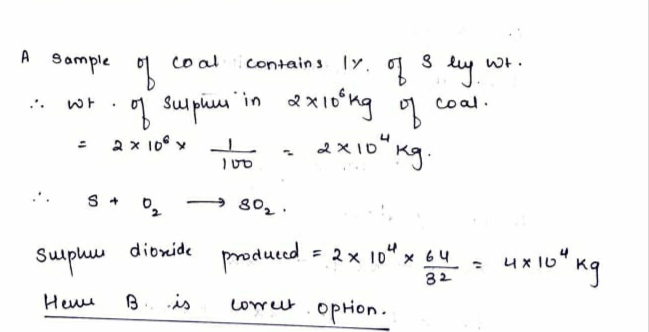 A Sample of coal contains 1%. of S by wt.
∴ wt. of Sulphur in 2×10⁶ kg of coal.
= 2 × 10⁶ × 1/100 = 2×10⁴ kg.
∴ S + O₂ → SO₂.
Sulphur dioxide produced = 2 × 10⁴ × 64/32 = 4×10⁴ kg
Hence B. is correct option.